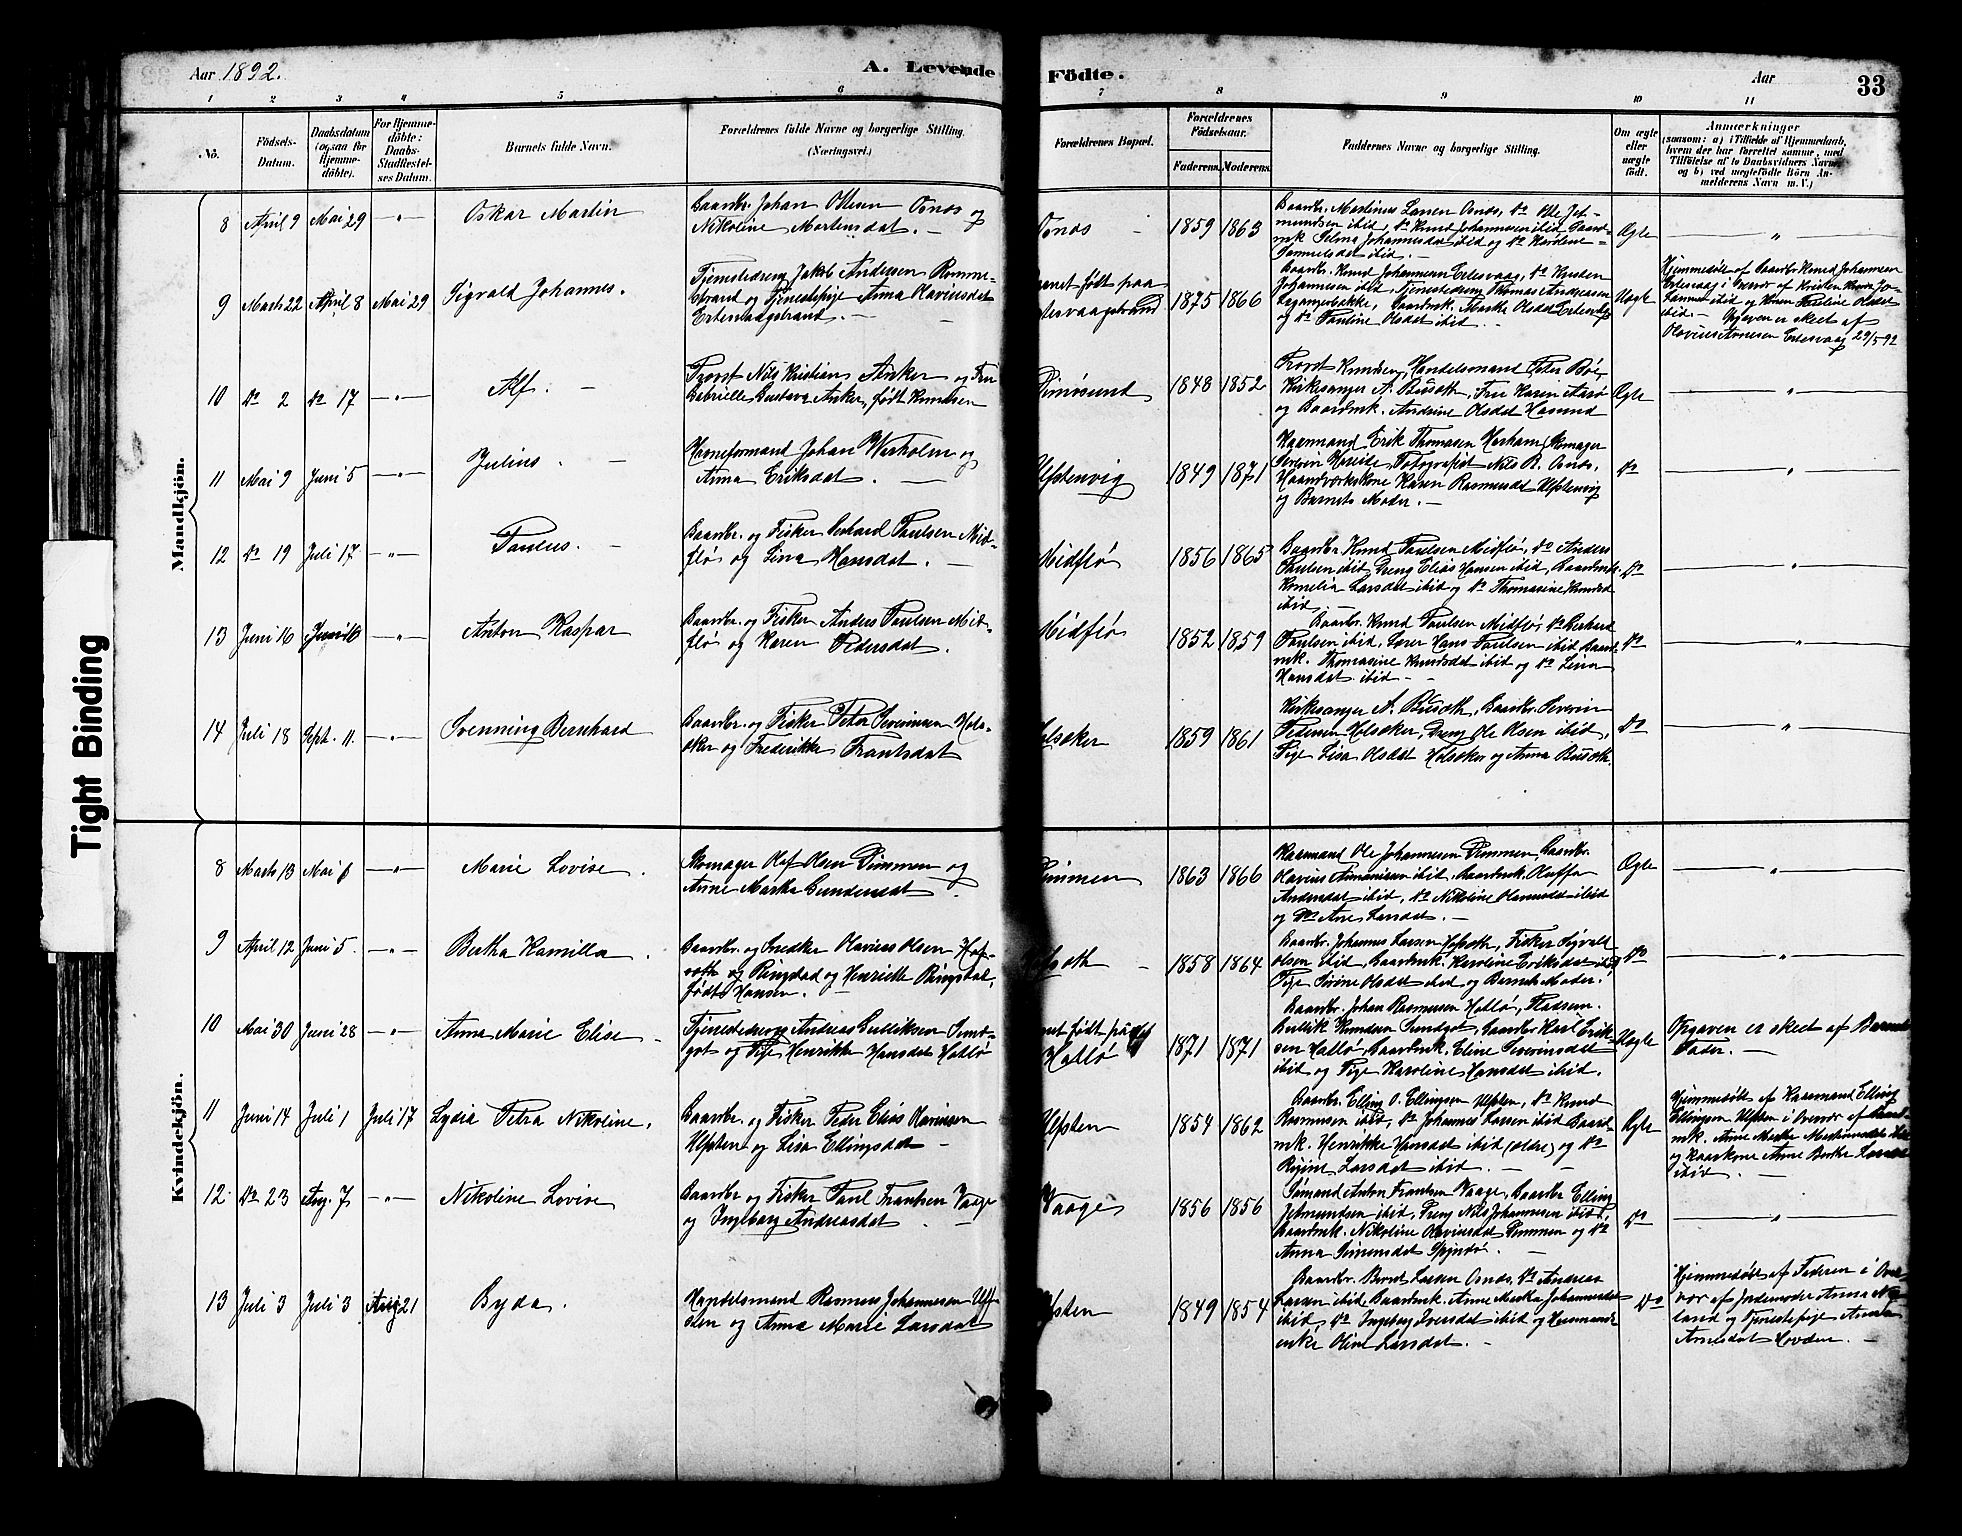 Aar 1892.
A. Levende Födte.
Aar
33
1 2 3 4 5 6 7 8 9 10 11
No.
Födsels-
Datum.
Daabsdatum
(ogsaa for
Hjemme-
döbte).
For Hjemme-
döbte:
Daabs-
Stadfæstel-
ses Datum.
Barnets fulde Navn.
Forældrenes fulde Navne og borgerlige Stilling.
(Næringsvei.)
Forældrenes Bopæl.
Forældrenes
Födselsaar.
Faderens. Moderens.
Faddernes Navne og borgerlige Stilling.
Om ægte
eller
uægte
födt.
Anmærkninger
(saasom: a) i Tilfælde af Hjemmedaab,
hvem der har forrettet samme, med
Tilföielse af to Daabsvidners Navne,
og b) ved uægtefödte Börn An-
melderens Navn m. V.)
Mandkjön.
8 April 9 Mai 29 -"- Oskar Martin
Gaardbr. Johan Ottesen Osnæs og
Nikoline Martensdat. -
Osnæs - 1859 1863
Gaardbr. Martinus Larsen Osnæs, Do Ole Jet-
mundsen ibid, Do Knud Johannesen ibid, Gaard-
mk. Selma Johannesdat ibid og Do Karoline
Samuelsdat ibid.
Ægte "
9 Marts 22 April 8 Mai 29 Sigvald Johannes.
Tjenestedreng Jakob Andersen Remme-
strand og Tjenestepige Anna Olavinsdat
Ertesvaagstrand. -
født paa
1875 1866
Gaardbr. Knud Johannesen Ertesvaag, Do Kristen
Johannesen ibid, Tjenestedreng Thomas Andreasen
Legangerbakke, Gaardmk. Marthe Olsdat Ertesvaag
og Do Pauline Olsdat ibid. -
Uægte
Hjemmedøbt af Gaardbr Knud Johannesen
Ertesvaag i Overvær af Kristen Jo-
hannesen ibid og Pauline Olsdat
ibid. - Opgaven er skeet af
Olavius Arnesen Ertesvaag 29/5 92
10 Do 2 Do 17 -"- Alf. -
Provst Nils Kristian Anker og Fru
Gabrielle Gustava Anker, født Knudsen
Dimøsund 1848 1852
Provst Kundsen, Handelsmand Peter Bøe,
Kirkesanger A. Busæth, Fru Karen Aarø
og Gaardmk. Andrine Olsdat Hasund
Ægte "
11 Mai 9 Juni 5 -"- Julius. -
Havneformand Johan Werholm og
Anna Eriksdat. -
Ulfstenvig 1849 1871
Kaarmand Erik Thomasen Herham, Skomager
Severin Hareide, Fotografist Nils R. Osnæs,
Haandværkskone Karen Rasmusdat Ulfstenvig
og Barnets Moder. -
Do "
12 Do 19 Juli 17 -"- Paulus. -
Gaardbr. og Fisker Gerhard Paulsen Mid-
flø og Lina Hansdat.
Midflø 1856 1865
Gaardbr. Knud Paulsen Midflø, Do Anders
Paulsen ibid, Dreng Elias Hansen ibid, Gaardmk.
Kornelia Larsdat ibid og Do Thomasine Knudsd
ibid. -
Do "
13 Juni 16 Juni 16 -"- Anton Kaspar
Gaardbr. og Fisker Anders Paulsen Mid-
flø og Karen Pedersdat.
Midflø 1852 1859
Gaardbr. Knud Paulsen Midflø, Do Gerhard
Paulsen ibid, Lærer Hans Paulsen ibid Gaard-
mk. Thomasine Knudsdat ibid og Do Lina
Hansdat ibid. -
Do "
14 Juli 18 Sept. 11. -"- Svenning Bernhard
Gaardbr. og Fisker Peter Severinsen Hols-
øker og Frederikke Frantsdat
1859 1861
Kirkesanger A. Busæth, Gaardbr. Severin
Pedersen Holsøker, Dreng Ole Olsen ibid,
Pige Lisa Olsdat Holsøker og Anna Busæth.
Do "
Kvindekjön.
8 Marts 13 Mai 8 -"- Marie Lovise.
Skomager Olaf Olsen Dimmen og
Anne Martha Gundersdat
Dimmen 1863 1866
Kaarmand Ole Johannesen Dimmen, Gaardbr.
Olavius ibid, Gaardmk. Oluffa
Andersdat ibid, Do Nikoline Olavusdat ibid
og Do Ane Larsdat. -
Ægte "
9 April 12 Juni 5. -"- Bertha Kamilla.
Gaardbr. og Snedker Olavius Olsen Hof-
sæth og Ringstad og Henriette Ringstad,
født Hansen. -
1858 1864
Gaardbr. Johannes Larsen Hofsæth, Fisker Sigvalt
Olsen ibid, Gaardmk. Karoline Eriksdat ibid,
Pige Sirine Olsdat ibid og Barnets Moder.
Do "
10 Mai 30 Juni 28 -"- Anna Marie Elise.
Tjenestedreng Andreas Gulliksen Sund-
got og Pige Henrikke Hansdat Hatlø
født på
Hatlø 1871 1871
Gaardbr. Johan Rasmusen Hatlø, Pladsem.
Gullik Knudsen Sundgot, Gaardbr Karl Erik-
sen Hatlø, Gaardmk. Eline Severinsdat
ibid og Pige Karoline Hansdat ibid.
Uægte
Opgaven er skeet af Barnets
Fader. -
11 Juni 14 Juli 1 Juli 17 Lydia Petra Nikoline.
Gaardbr. og Fisker Peder Elias
Ulfsten og Lisa Ellingsdat -
Ulfsten 1854 1862
Gaardbr. Elling O. Ellingsen Ulfsten, Do Knud
Rasmusen ibid, Do Johannes Larsen ibid Gaard-
mk. Henrikke Hansdat ibid (ældre) og Do
Regine Larsdat ibid. -
Ægte
Hjemmedøbt af Kaarmand Elling
Ellingsen Ulfsten i Overvær af Gaard-
mk. Anne Marthe Martinusdat ibid
og Kaarkone Anne Berthe Larsdat
ibid. -
12. Do 23 Aug. 7 -"- Nikoline Lovise
Gaardbr og Fisker Paul Frantsen Vaage
og Ingeborg Andreasdat. -
Vaage 1856 1856
Sømand Anton Frantsen Vaage, Gaardbr Elling
Jetmundsen ibid, Dreng Nils Johannesen ibid,
Gaardmk. Nikoline Olavusdat Dimmen og Do
Anna Simonsdat -
Do "
13 Juli 3 Juli 3 Aug 21 Gyda.
Handelsmand Rasmus Johannesen Ulf-
sten og Anna Marie Larsdat
1849 1854
Gaardbr. Bernt Larsen Osnæs, Do Andreas
Larsen ibid, Gaardmk. Anne Martha Johannesdat
ibid, Do Ingeborg Iversdat ibid og
enke Oline Larsdat. -
Do
Hjemmedøbt af Faderen i Over-
vær af Jordemoder Anna
land og Tjenestepige
Arnesdat Hovden. -
Tight Binding